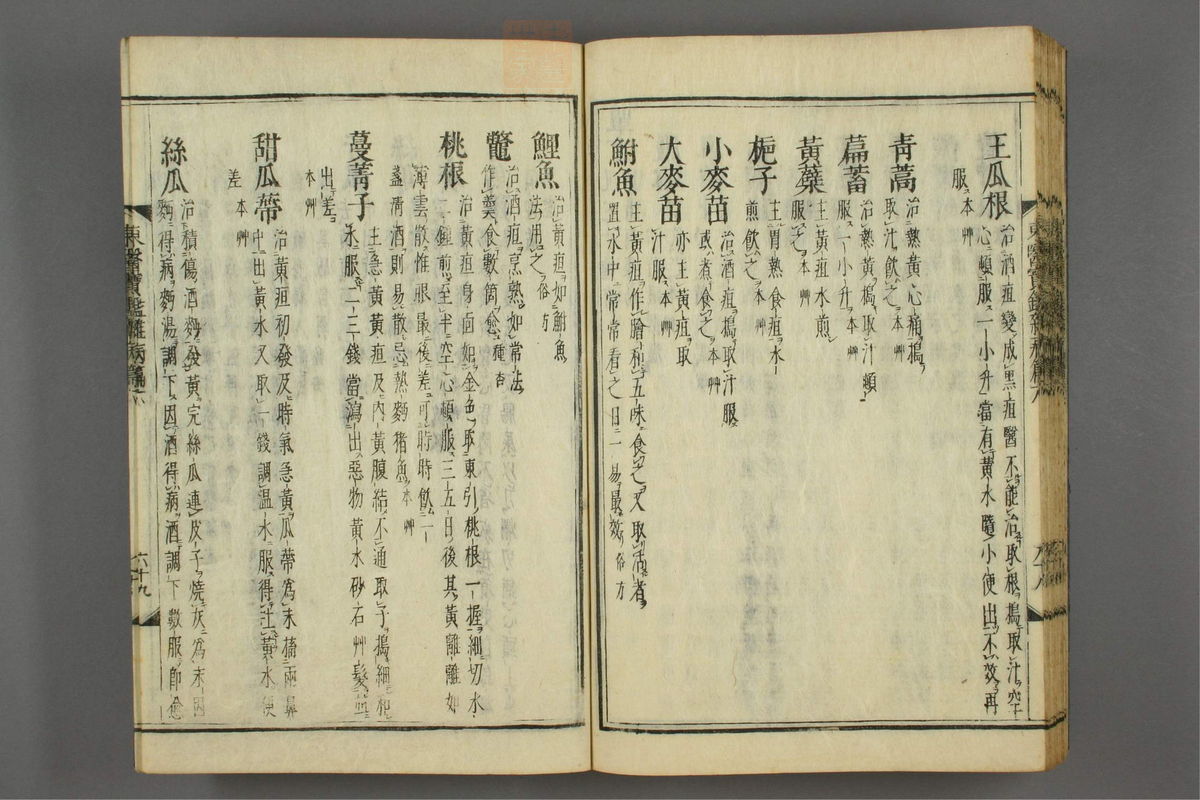 王瓜根
治酒疸變成黑疸醫不能治取根搗取汁空
心頓服一小升當有黃水隨小便出不效再
服本艸
靑蒿
治熱黃心痛搗
取汁飮之本艸
萹蓄
治熱黃搗取汁頓
服一小升本艸
黃蘗
主黃疸水煎
服之本艸
梔子
主胃熱食疸水
煎飮之本艸
小麥苗
治酒疸搗取汁服
或煮食之本艸
大麥苗
亦主黃疸取
汁服本艸
鮒魚
主黃疸作膾和五味食之又取活者
置水中常常看之日二易最效俗方
鯉魚
治黃疸如鮒魚
法用之俗方
鼈
治酒疸烹熟如常法
作羹食數箇愈種杏
桃根
治黃疸身面如金色取東引桃根一握細切水
二鍾煎至半空心頓服三五日後其黃離離如
薄雲散惟眼最後差可時時飮一
盞淸酒則易散忌熱麪猪魚本艸
蔓菁子
主急黃黃疸及內黃腹結不通取子搗細和
水服二三錢當瀉出惡物黃水砂石艸髮並
出差
本艸
甜瓜蔕
治黃疸初發及時氣急黃瓜蔕爲末㨪兩鼻
中出黃水又取一錢調溫水服得吐黃水便
差本艸
絲瓜
治積傷酒麪發黃完絲瓜連皮子燒灰爲末因
麪得病麪湯調下因酒得病酒調下數服卽愈
東醫寶鑑雜病篇
六十九